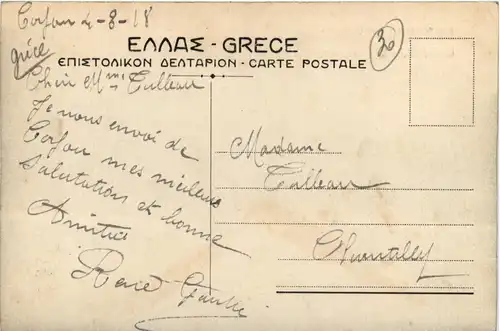 Corfou 4-8-18
grèce
30
ΕΛΛΑΣ - GRECE
ΕΠΙΣΤΟΛΙΚΟΝ ΔΕΛΤΑΡΙΟΝ - CARTE POSTALE
Chère Mme Tulleau
Je vous envoi de
Corfou mes meilleure
salutations et bonne
Amitié
René
Madame
Tulleau
Chantilly